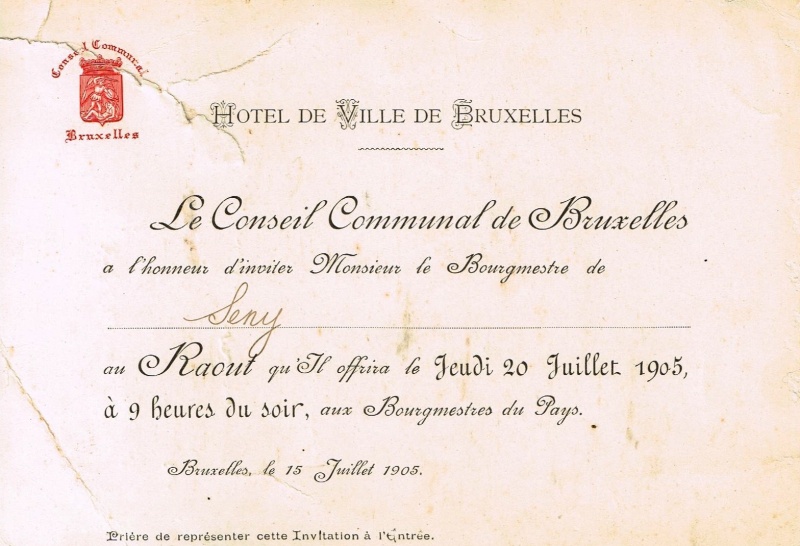 Conseil Communal
Bruxelles
HOTEL DE VILLE DE BRUXELLES
Le Conseil Communal de Bruxelles
a l'honneur d'inviter Monsieur le Bourgmestre de
Seny
au Raout qu'Il offrira le Jeudi 20 Juillet 1905,
à 9 heures du soir, aux Bourgmestres du Pays.
Bruxelles, le 15 Juillet 1905.
Prière de représenter cette Invitation à l'Entrée.